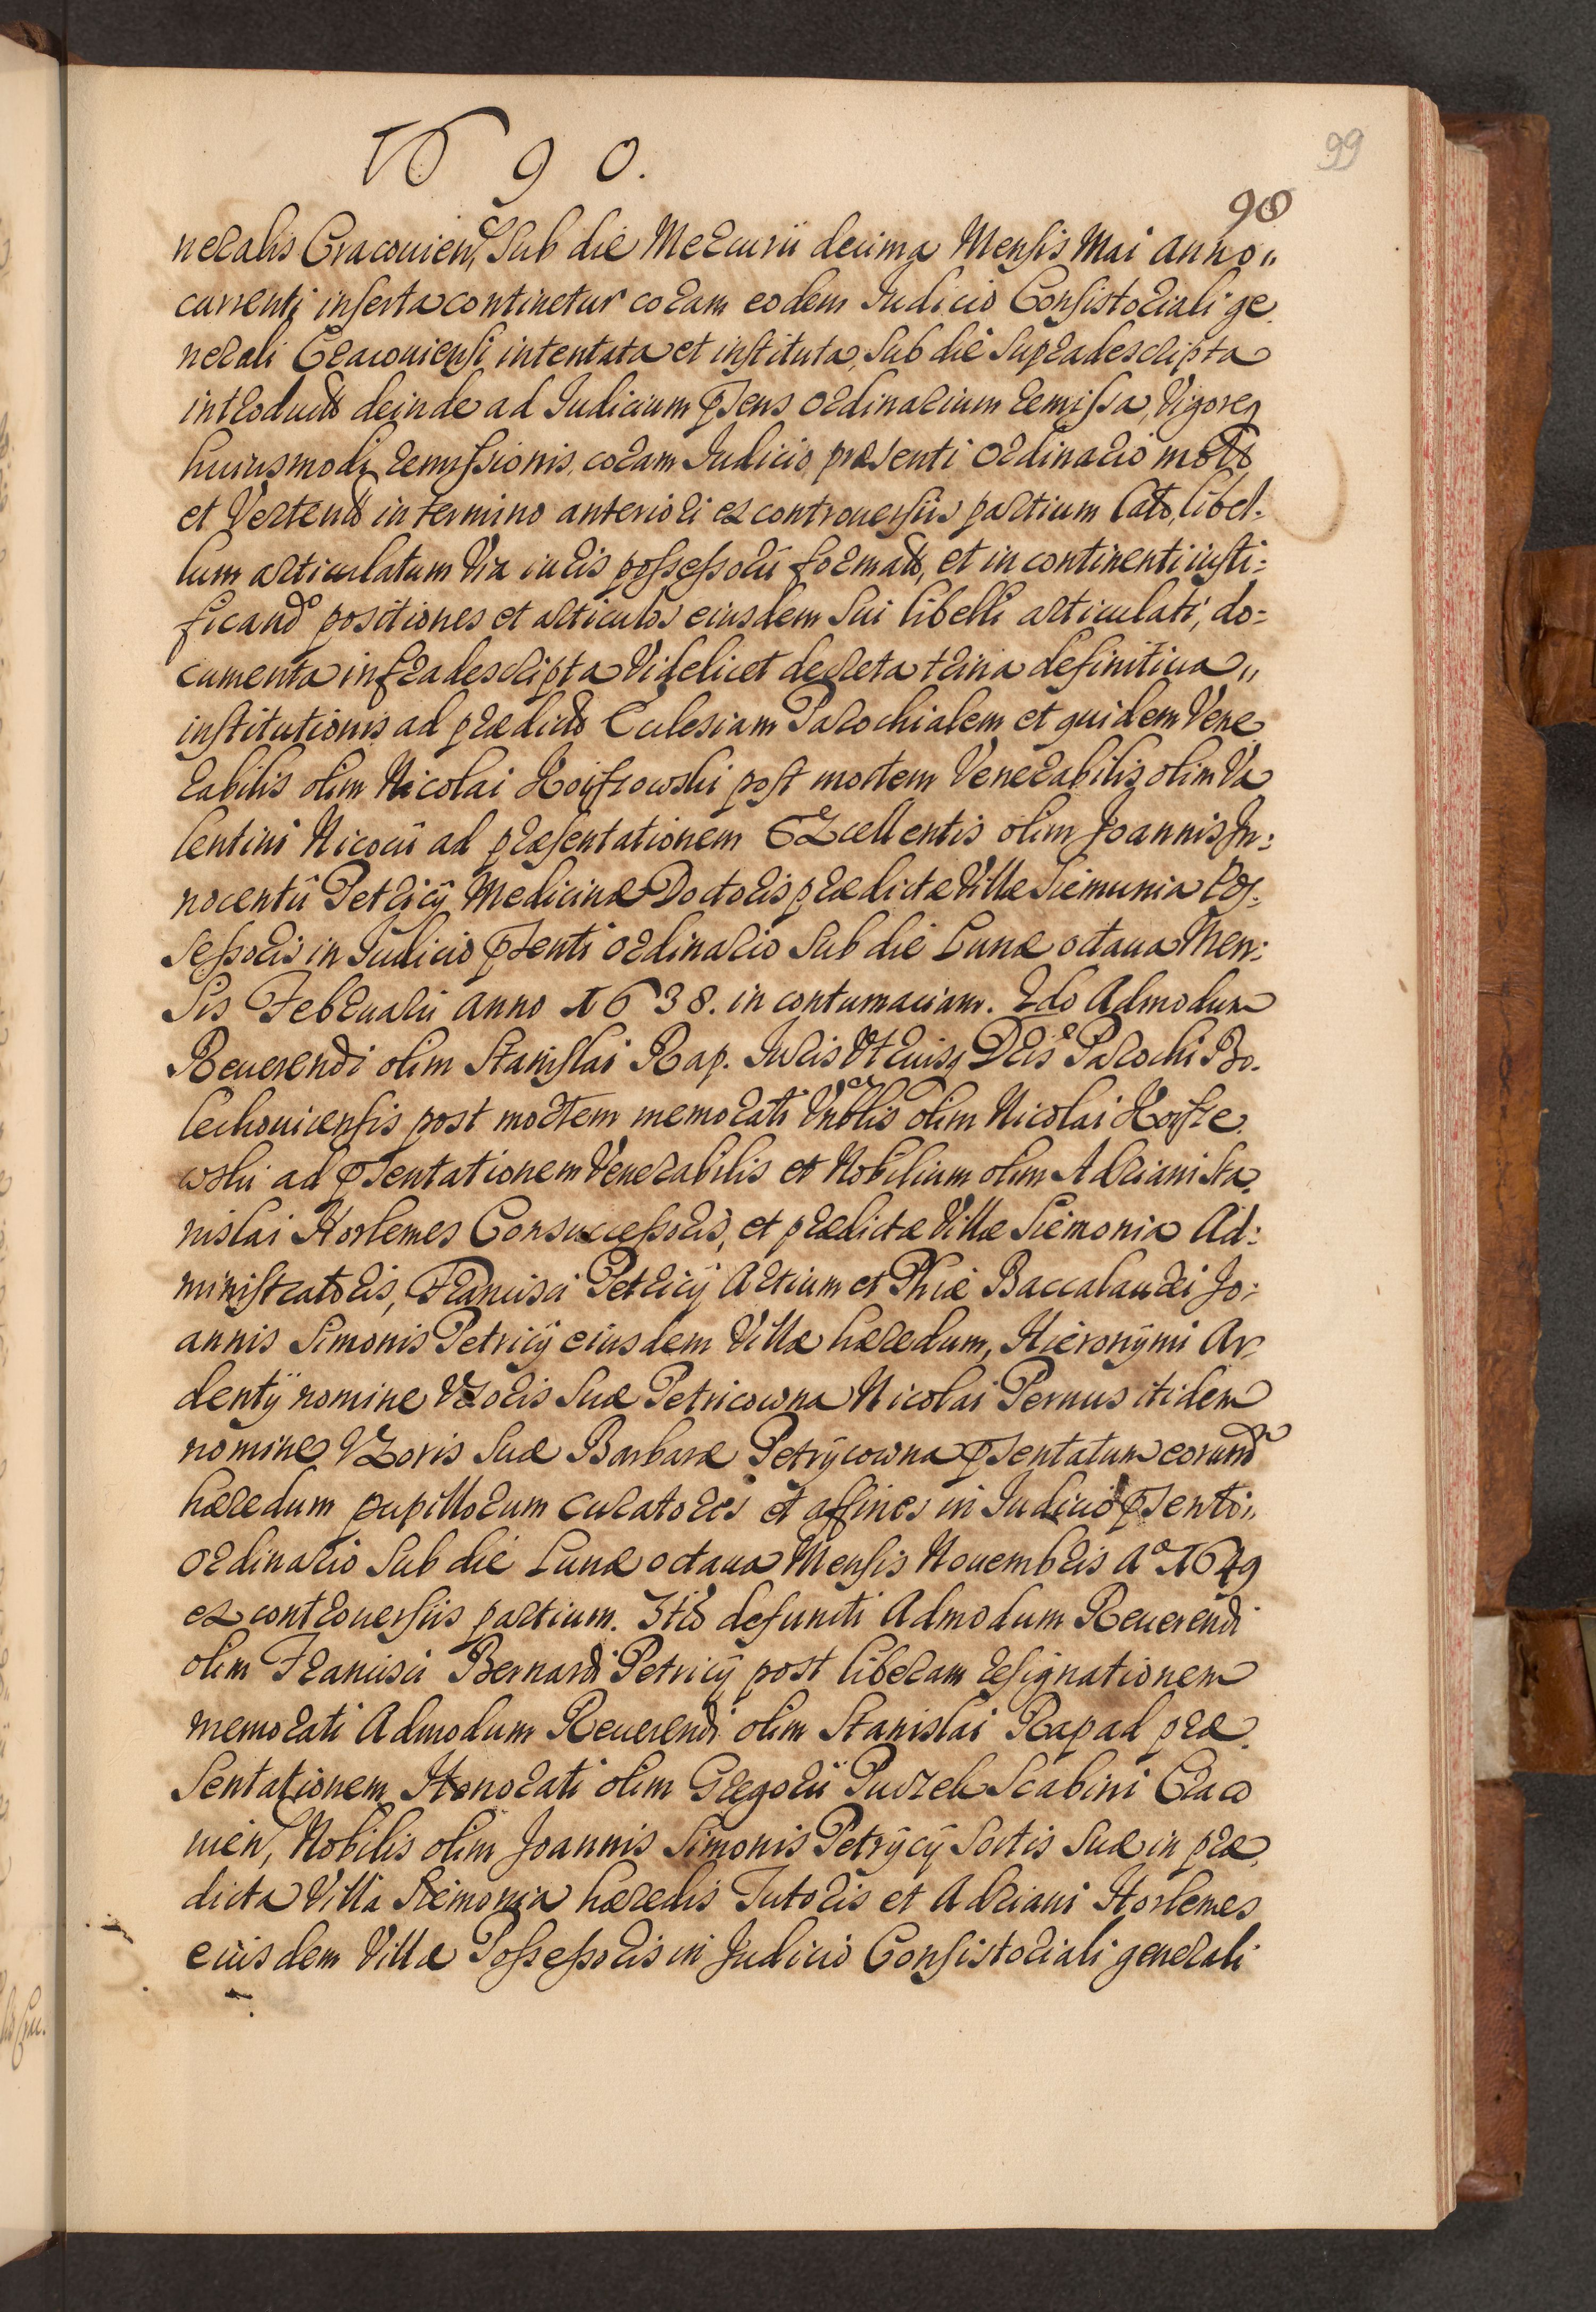 1690.
99
98
neralis Cracouien, Sub die Mercurii decima Mensis Mai anno
currenti inserta continetur coram eodem Iudicio Consistoriali ge
nerali Cracouiensi intentata et instituta, Sub die Supradescripta
introducta deinde ad Iudicium pſens ordinarium remissa, Vigore
huiusmodi remissionis, coram Iudicio præsenti Ordinario mota
et Vertend in termino anteriori ex controuersiis partium lato, libel:
lum articulatum Via iuris possessorii format, et in continenti iusti:
ficand positiones et articulos eiusdem Sui libelli articulati, do:
cumenta infradescripta Videlicet decreta trina definitiua
institutionis ad prædict Eclesiam Parochialem et quidem Vene
rabilis olim Nicolai post mortem Venerabilis olim Va
lentini ad præsentationem Excellentis olim Joannis In:
nocentii Petricij Medicinæ Doctoris prædictæ Villæ Siemunia Pos:
sessoris in Iudicio pſenti ordinario Sub die Lunæ octaua Men:
sis Februarii anno 1638. in contumaciam. 2do Admodum
Reuerendi olim Stanislai Rap. Iuris Vtriusq Dris Parochi Bo.
lechouicensis post mortem memorati Vnblis olim Nicolai
wski ad pſentationem Venerabilis et Nobilium olim Adriani Sta
nislai Horlemes Consuccessoris, et prædictæ Villæ Siemonia Ad:
ministratoris, Francisci Petricij Artium et Phiæ Baccalaurei Jo:
annis Simonis Petricij eiusdem Villæ hæredum, Hieronymi Ar
dentij nomine Vxoris Suæ Petricowna Nicolai Pernus itidem
nomine Vxoris Suæ Barbaræ Petrycowna pſentatum eorund
hæredum pupillorum curatores et affines in Iudicio pſenti
ordinario Sub die Lunæ octaua Mensis Nouembris Ao 1649
ex controuersiis partium. 3tio defuncti Admodum Reuerendi
olim Francisci Bernardi Petricij post liberam resignationem
memorati Admodum Reuerendi olim Stanislai Rap ad præ
sentationem Honorati olim Gregorii Scabini Craco
uien, Nobilis olim Joannis Simonis Petrycij Sortis Suæ in præ
dicta Villa Siemonia hæredis Tutoris et Adriani Horlemes
eiusdem Villæ Possessoris in Judicio Consistoriali generali